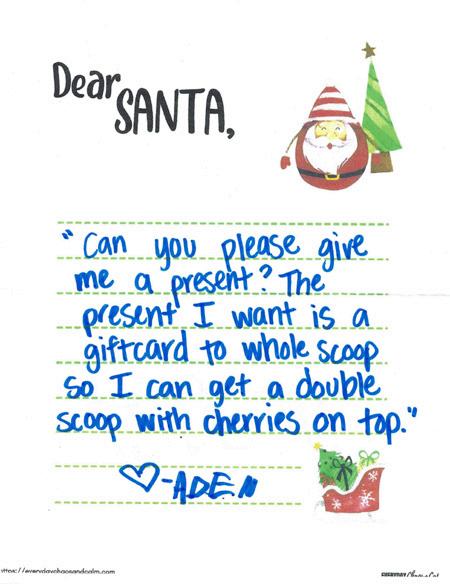 Dear
SANTA,
"Can you please give
me a present? The
present I want is a
giftcard to whole scoop
so I can get a double
scoop with cherries on top."
♡-ADEN
https://everydaychaosandcalm.com